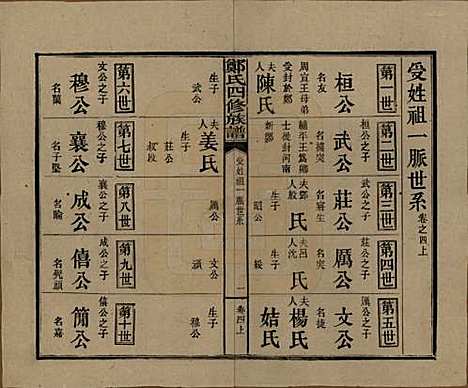 受姓祖一脈世系 卷之四上
第一世
桓公 名友
周宣王母弟受封於鄭
夫人 陳氏
生子
武公
第二世
武公 名突
輔平王為卿士後封河南新鄭
夫人 姜氏
生子
莊公
叔段
第三世
莊公 名寤生
武公之子
夫人 鄧氏
生子
昭公
厲公
第四世
厲公 名突
莊公之子
夫人
生子
文公
第五世
文公 名捷
厲公之子
夫人 楊氏
姞氏
生子
穆公
鄭氏四修族譜
受姓祖一脈世系
一
卷四上
第六世
穆公 名蘭
文公之子
第七世
襄公 名子堅
穆公之子
第八世
成公 名睔
襄公之子
第九世
僖公 名髡頑
成公之子
第十世
簡公 名嘉
僖公之子